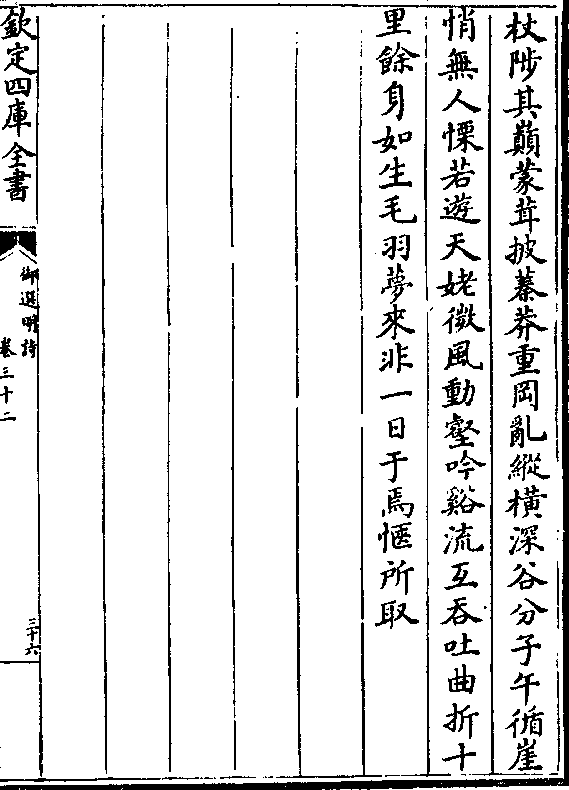 杖陟其巔蒙茸披蓁莽重岡亂縱橫深谷分子午循崖
悄無人慄若遊天姥微風動壑吟谿流互吞吐曲折十
里餘身如生毛羽夢來非一日于焉愜所取
欽定四庫全書
御選明詩
卷三十二
三十六